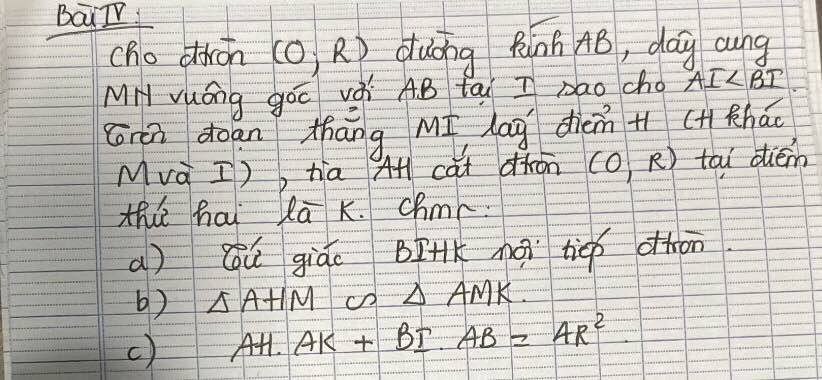 Bài IV:
Cho đtròn (O; R) đường kính AB, dây cung
MN vuông góc với AB tại I sao cho AI<BI.
Trên đoạn thẳng MI lấy điểm H (H khác
M và I), tia AH cắt đtròn (O, R) tại điểm
thứ hai là K. Chmr:
a) Tứ giác BIHK nội tiếp đtròn.
b) Δ AHM ∽ Δ AMK.
c) AH. AK + BI. AB = 4R².